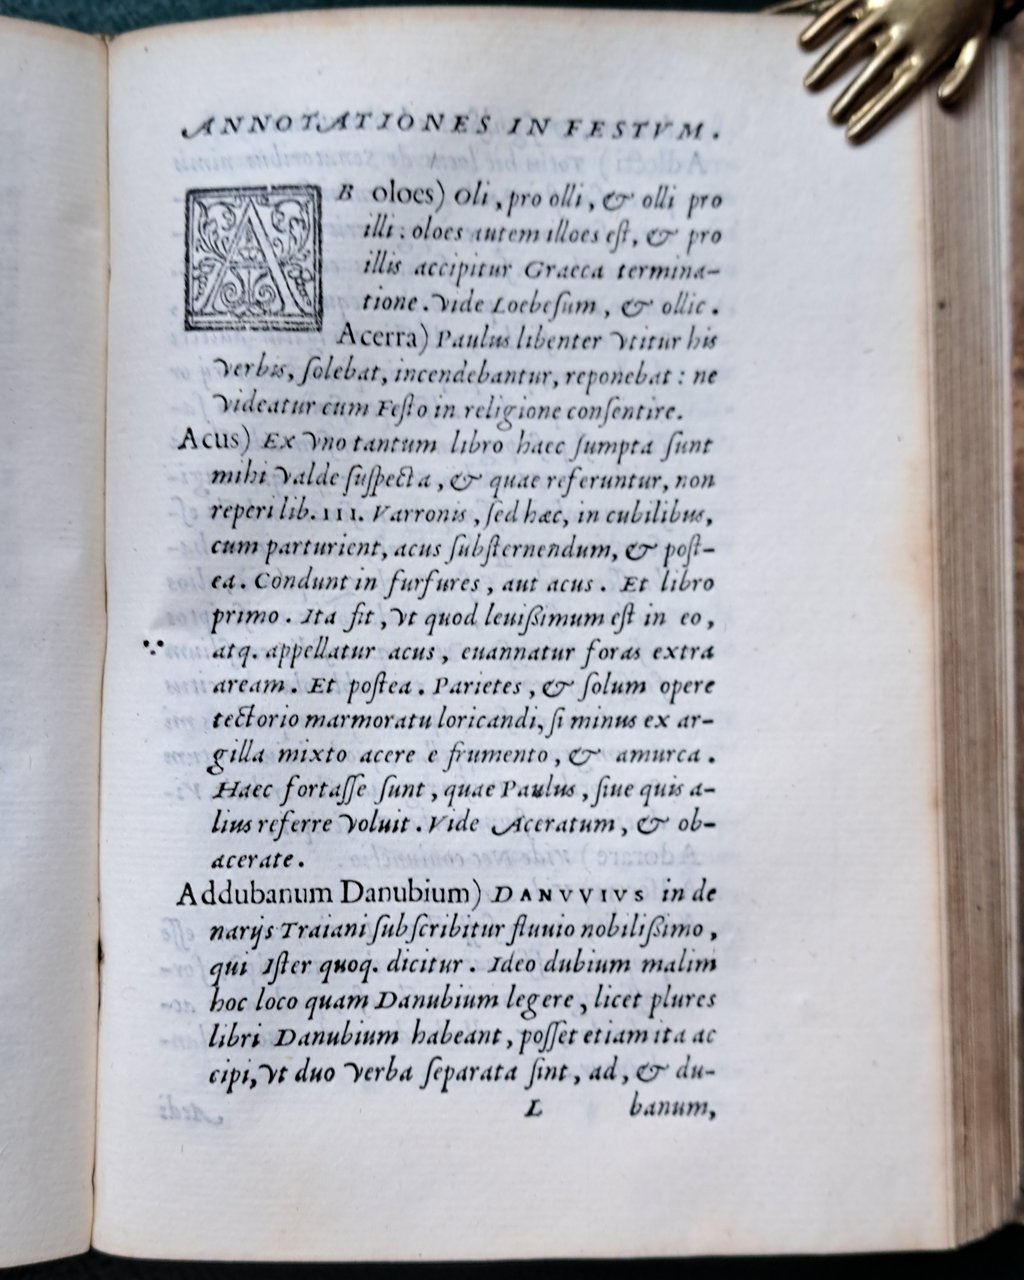 ANNOTATIONES IN FESTVM.
AB oloes) Oli, pro olli, & olli pro
illi: oloes autem illoes eſt, & pro
illis accipitur Graeca termina-
tione. Vide Loebeſum, & ollic.
Acerra) Paulus libenter vtitur his
verbis, ſolebat, incendebantur, reponebat: ne
videatur cum Feſto in religione conſentire.
Acus) Ex vno tantum libro haec ſumpta ſunt
mihi valde ſuſpecta, & quae referuntur, non
reperi lib. III. Varronis, ſed hæc, in cubilibus,
cum parturient, acus ſubſternendum, & poſt-
ea. Condunt in furfures, aut acus. Et libro
primo. Ita fit, vt quod leuiſsimum eſt in eo,
atq. appellatur acus, euannatur foras extra
aream. Et poſtea. Parietes, & ſolum opere
tectorio marmoratu loricandi, ſi minus ex ar-
gilla mixto acere e frumento, & amurca.
Haec fortaſſe ſunt, quae Paulus, ſiue quis a-
lius referre voluit. Vide Aceratum, & ob-
acerate.
Addubanum Danubium) DANVVIVS in de
narijs Traiani ſubſcribitur fluuio nobiliſsimo,
qui Iſter quoq. dicitur. Ideo dubium malim
hoc loco quam Danubium legere, licet plures
libri Danubium habeant, poſſet etiam ita ac
cipi, vt duo verba ſeparata ſint, ad, & du-
L banum,